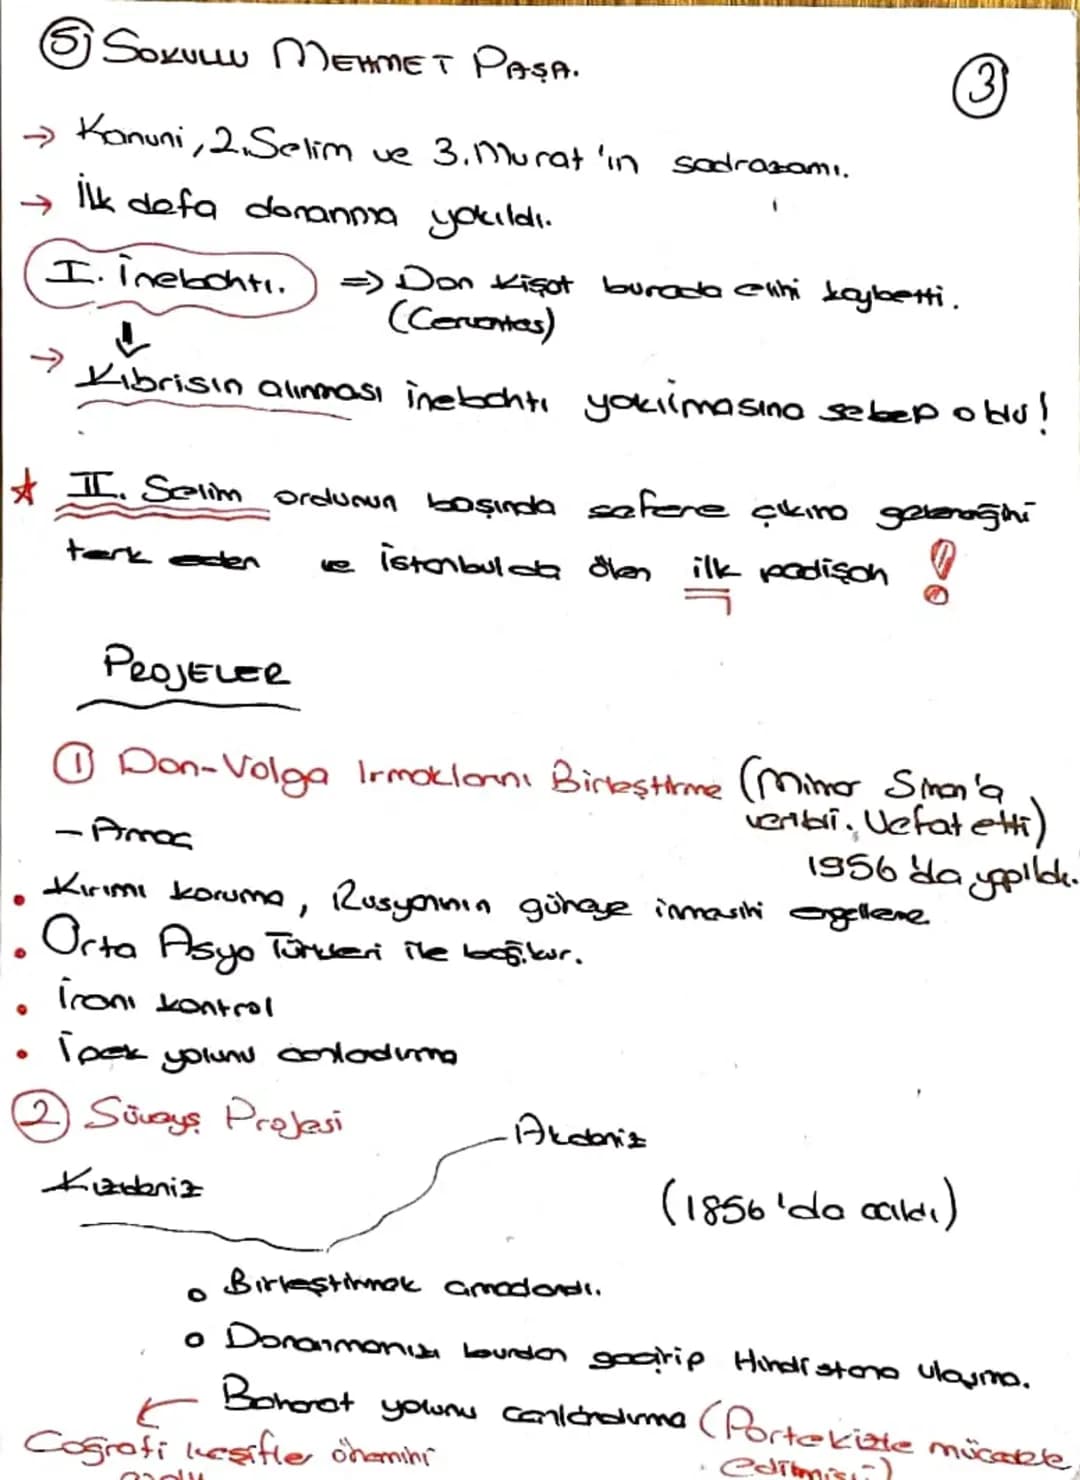 5) SOKULLU MEHMET PAŞA.
3
→ Kanuni, 2.Selim ve 3.Murat'ın sadrazamı.
→ İlk defa donanma yakıldı.
I. İnebahtı. ⇒ Don Kişot burada elini kaybetti.
(Cervantes)
→ Kıbrisın alınması inebahtı yakılmasına sebep oldu!
★ II. Selim ordunun başında sefere çıkma geleneğini
terk eden ve İstanbulda ölen ilk padişah !
PROJELER
1 Don-Volga Irmaklarını Birleştirme (Mimar Sinan'a
verildi. Vefat etti)
1956'da yapıldı.
- Amaç
• Kırımı koruma, Rusyanın güneye inmesini engelleme
• Orta Asya Türkleri ile bağ. kur.
• İranı kontrol
• İpek yolunu canladırma
2 Süveyş Projesi
Akdeniz
Kızıldeniz
(1856'da açıldı)
Birleştirmek amaçlandı.
Donanmamızı burdan geçirip Hindistana ulaşma.
Baharat yolunu canlandırma (Portekizle mücadele
edilmişi)
← Coğrafi keşifle önemini